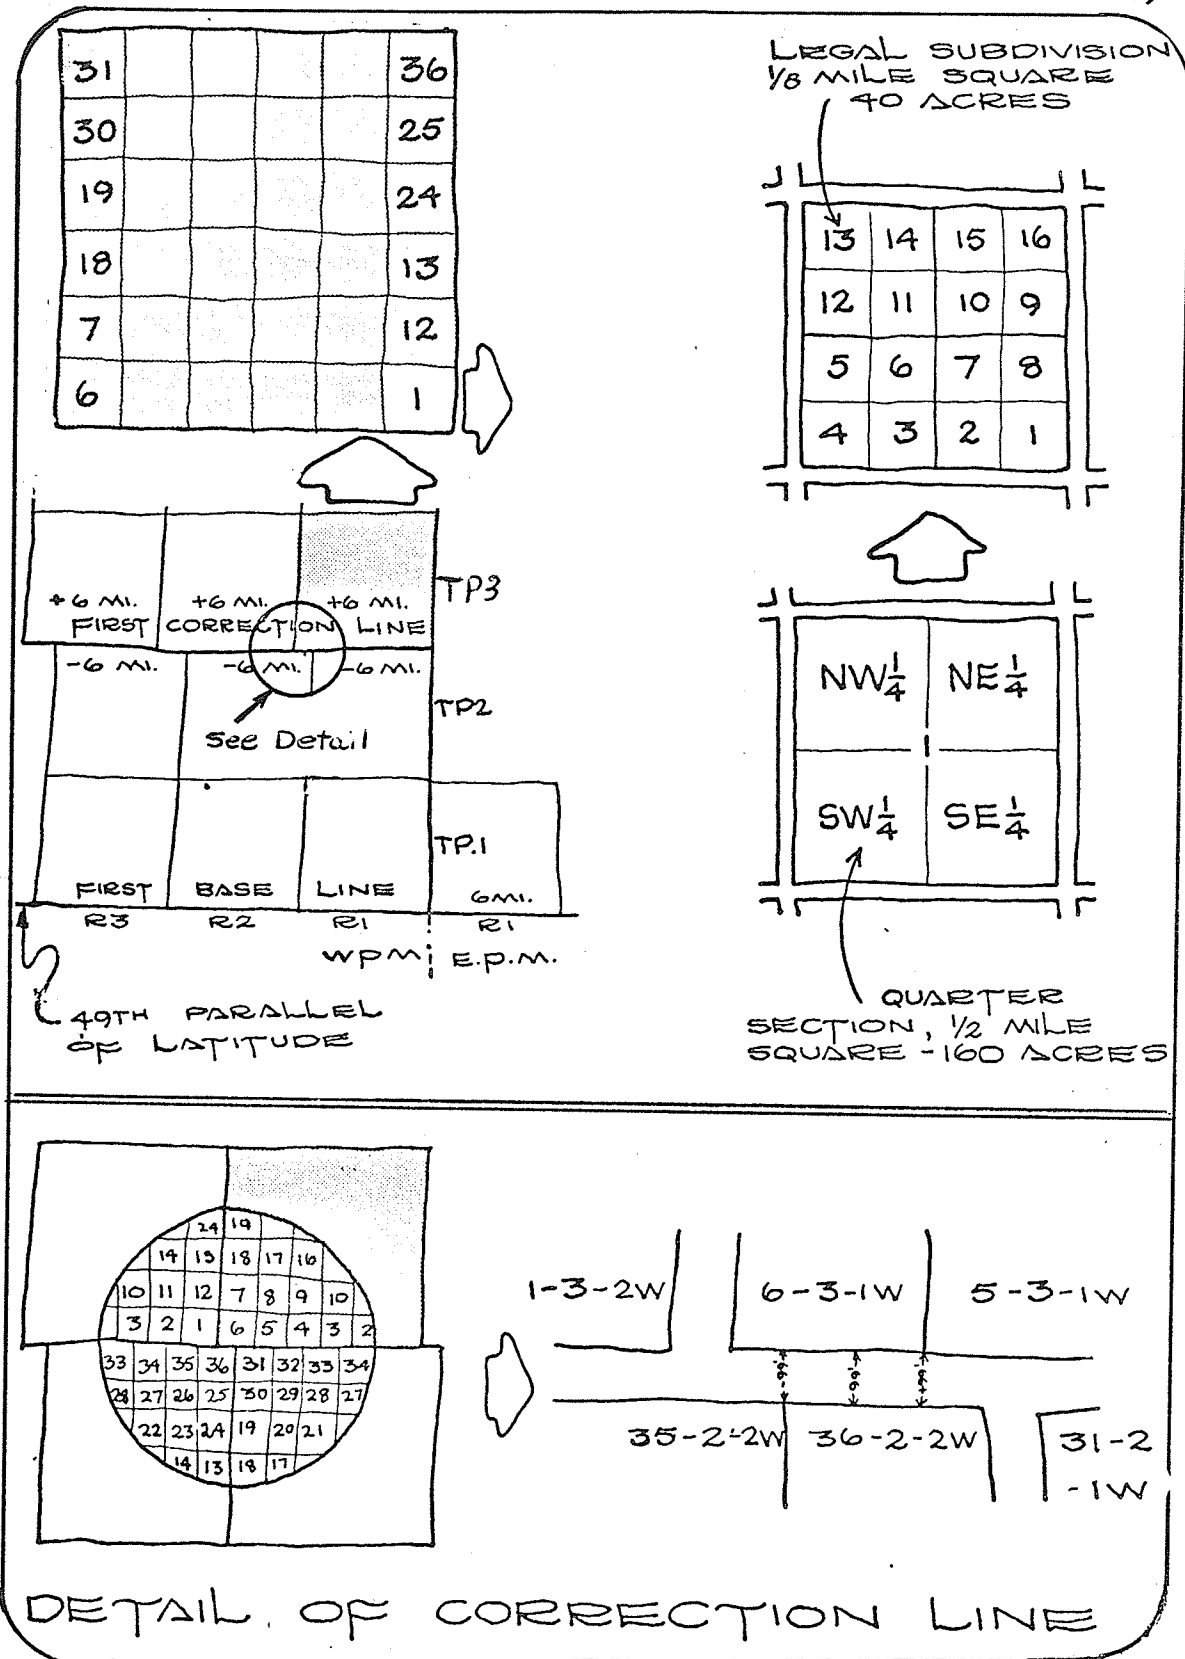 31 36
30 25
19 24
18 13
7 12
6 1
LEGAL SUBDIVISION
1/8 MILE SQUARE
40 ACRES
13 14 15 16
12 11 10 9
5 6 7 8
4 3 2 1
+6 MI. +6 MI. +6 MI.
FIRST CORRECTION LINE
TP3
-6 MI. -6 MI. -6 MI.
TP2
See Detail
TP.1
FIRST BASE LINE 6MI.
R3 R2 R1 R1
WPM E.P.M.
49TH PARALLEL
OF LATITUDE
NW 1/4 NE 1/4
1
SW 1/4 SE 1/4
QUARTER
SECTION, 1/2 MILE
SQUARE - 160 ACRES
24 19
14 13 18 17 16
10 11 12 7 8 9 10
3 2 1 6 5 4 3 2
33 34 35 36 31 32 33 34
28 27 26 25 30 29 28 27
22 23 24 19 20 21
14 13 18 17
1-3-2W 6-3-1W 5-3-1W
-99'- -66'- -66'-
35-2-2W 36-2-2W 31-2
-1W
DETAIL OF CORRECTION LINE